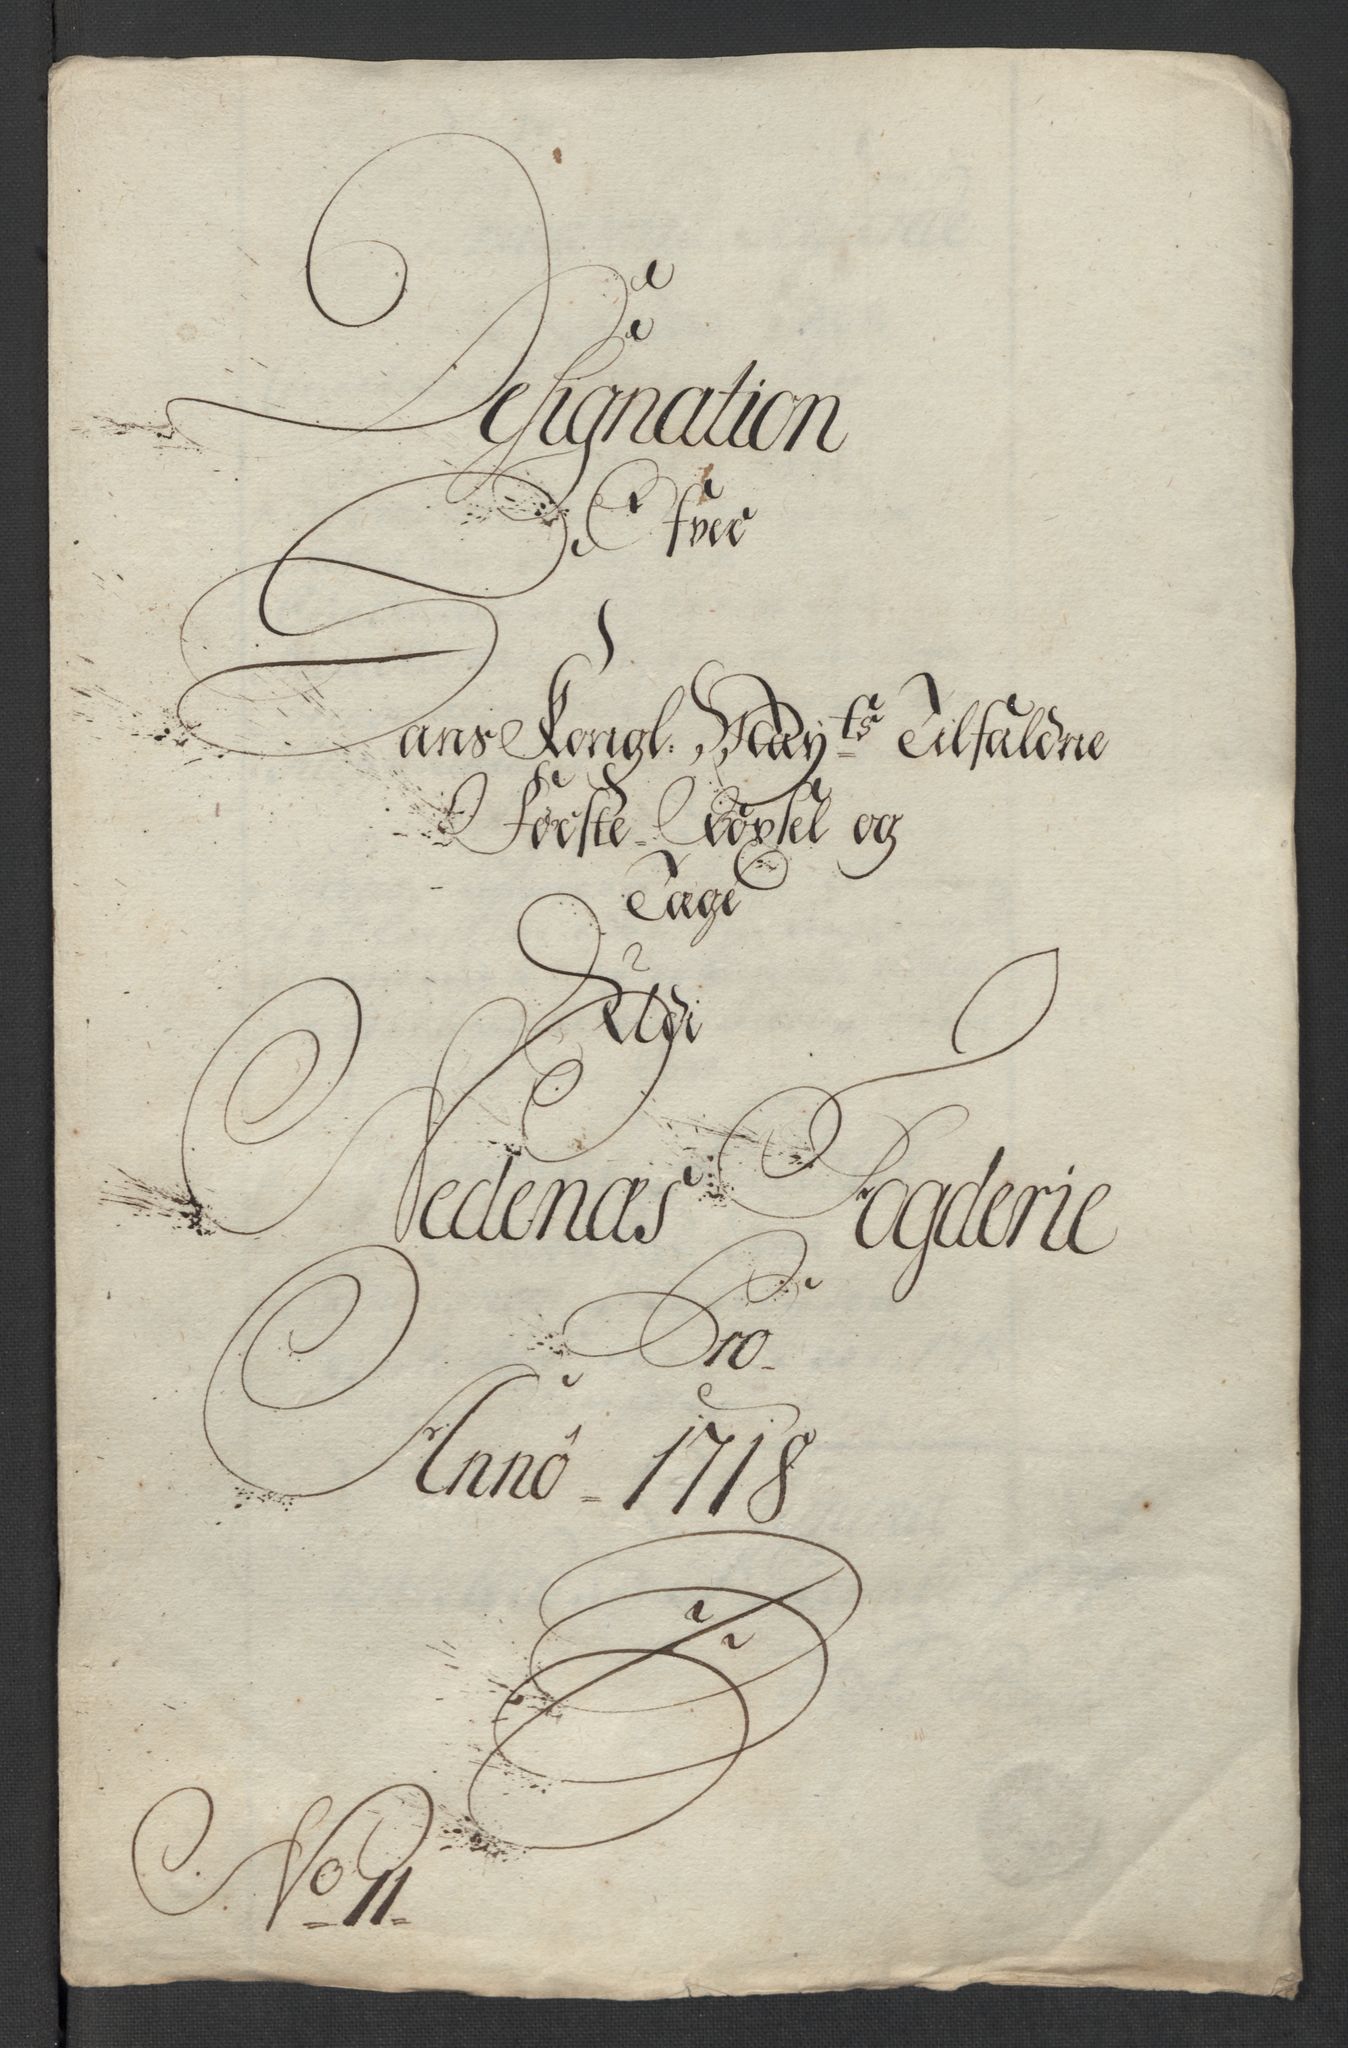 Designation
Ofver
Hans Kongl. Mayts Tilfaldne
Første Bøxsel og
Tage
Udi
Nedenæs Fogderie
Pro
Anno 1718
No 11